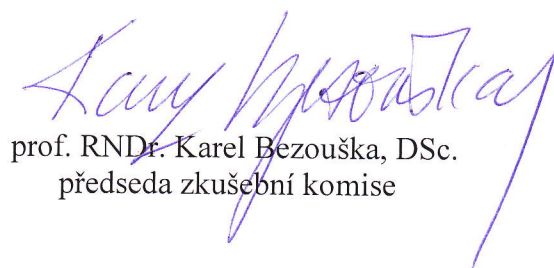 prof. RNDr. Karel Bezouška, DSc.
předseda zkušební komise